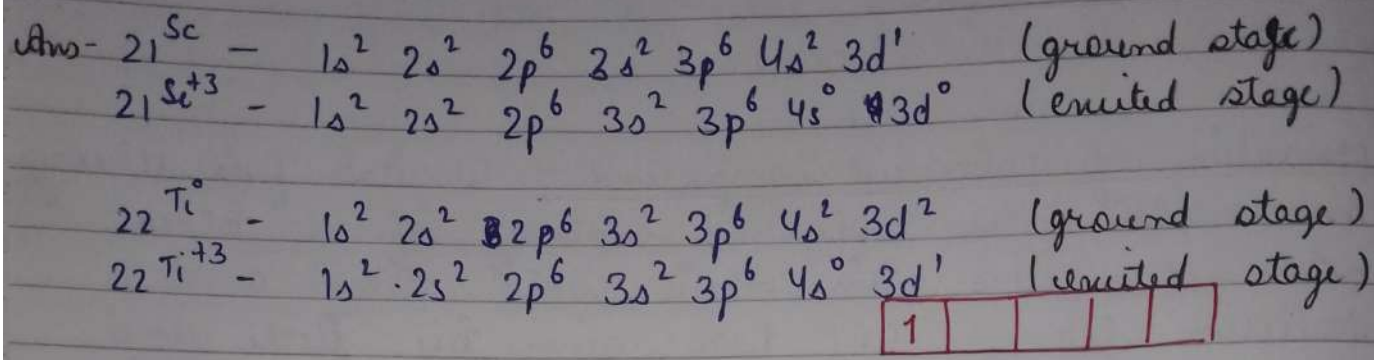 Ans- 21 Sc - 1s² 2s² 2p⁶ 3s² 3p⁶ 4s² 3d¹ (ground stage)
21 Sc⁺³ - 1s² 2s² 2p⁶ 3s² 3p⁶ 4s⁰ 3d⁰ (exited stage)
22 Ti⁰ - 1s² 2s² 2p⁶ 3s² 3p⁶ 4s² 3d² (ground stage)
22 Ti⁺³ - 1s² . 2s² 2p⁶ 3s² 3p⁶ 4s⁰ 3d¹ (exited stage)
1